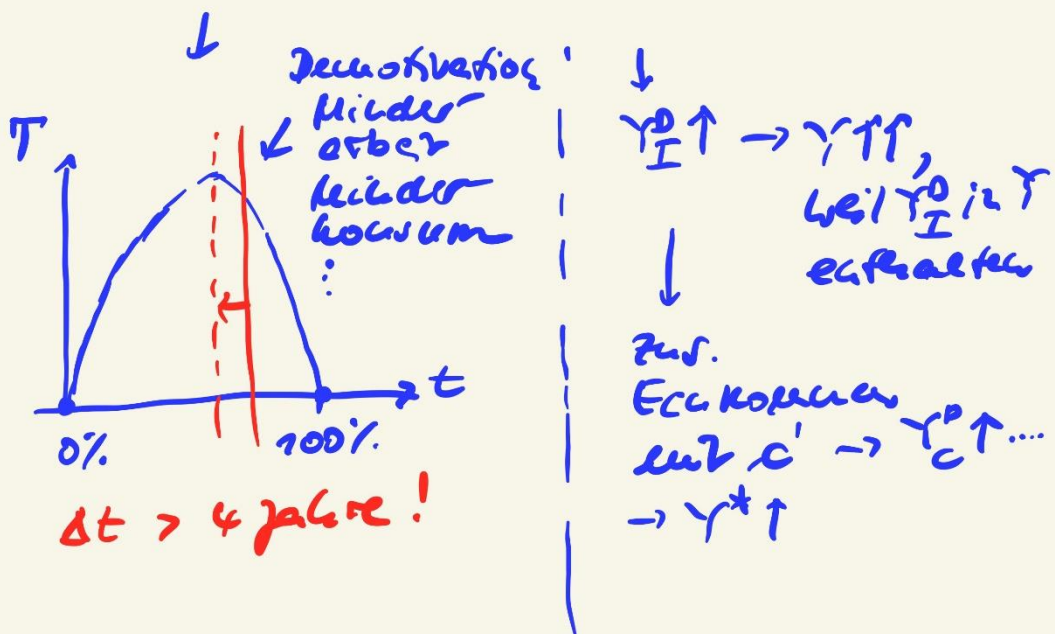 Demotivation
Minder
arbeit
Minder
konsum
⋮
T
t
0%
100%
Δt > 4 Jahre!
Y_I^D ↑ → Y ↑↑,
weil Y_I^D in Y
enthalten
Zus.
Einkommen
mit c' → Y_C^D ↑ ....
→ Y* ↑